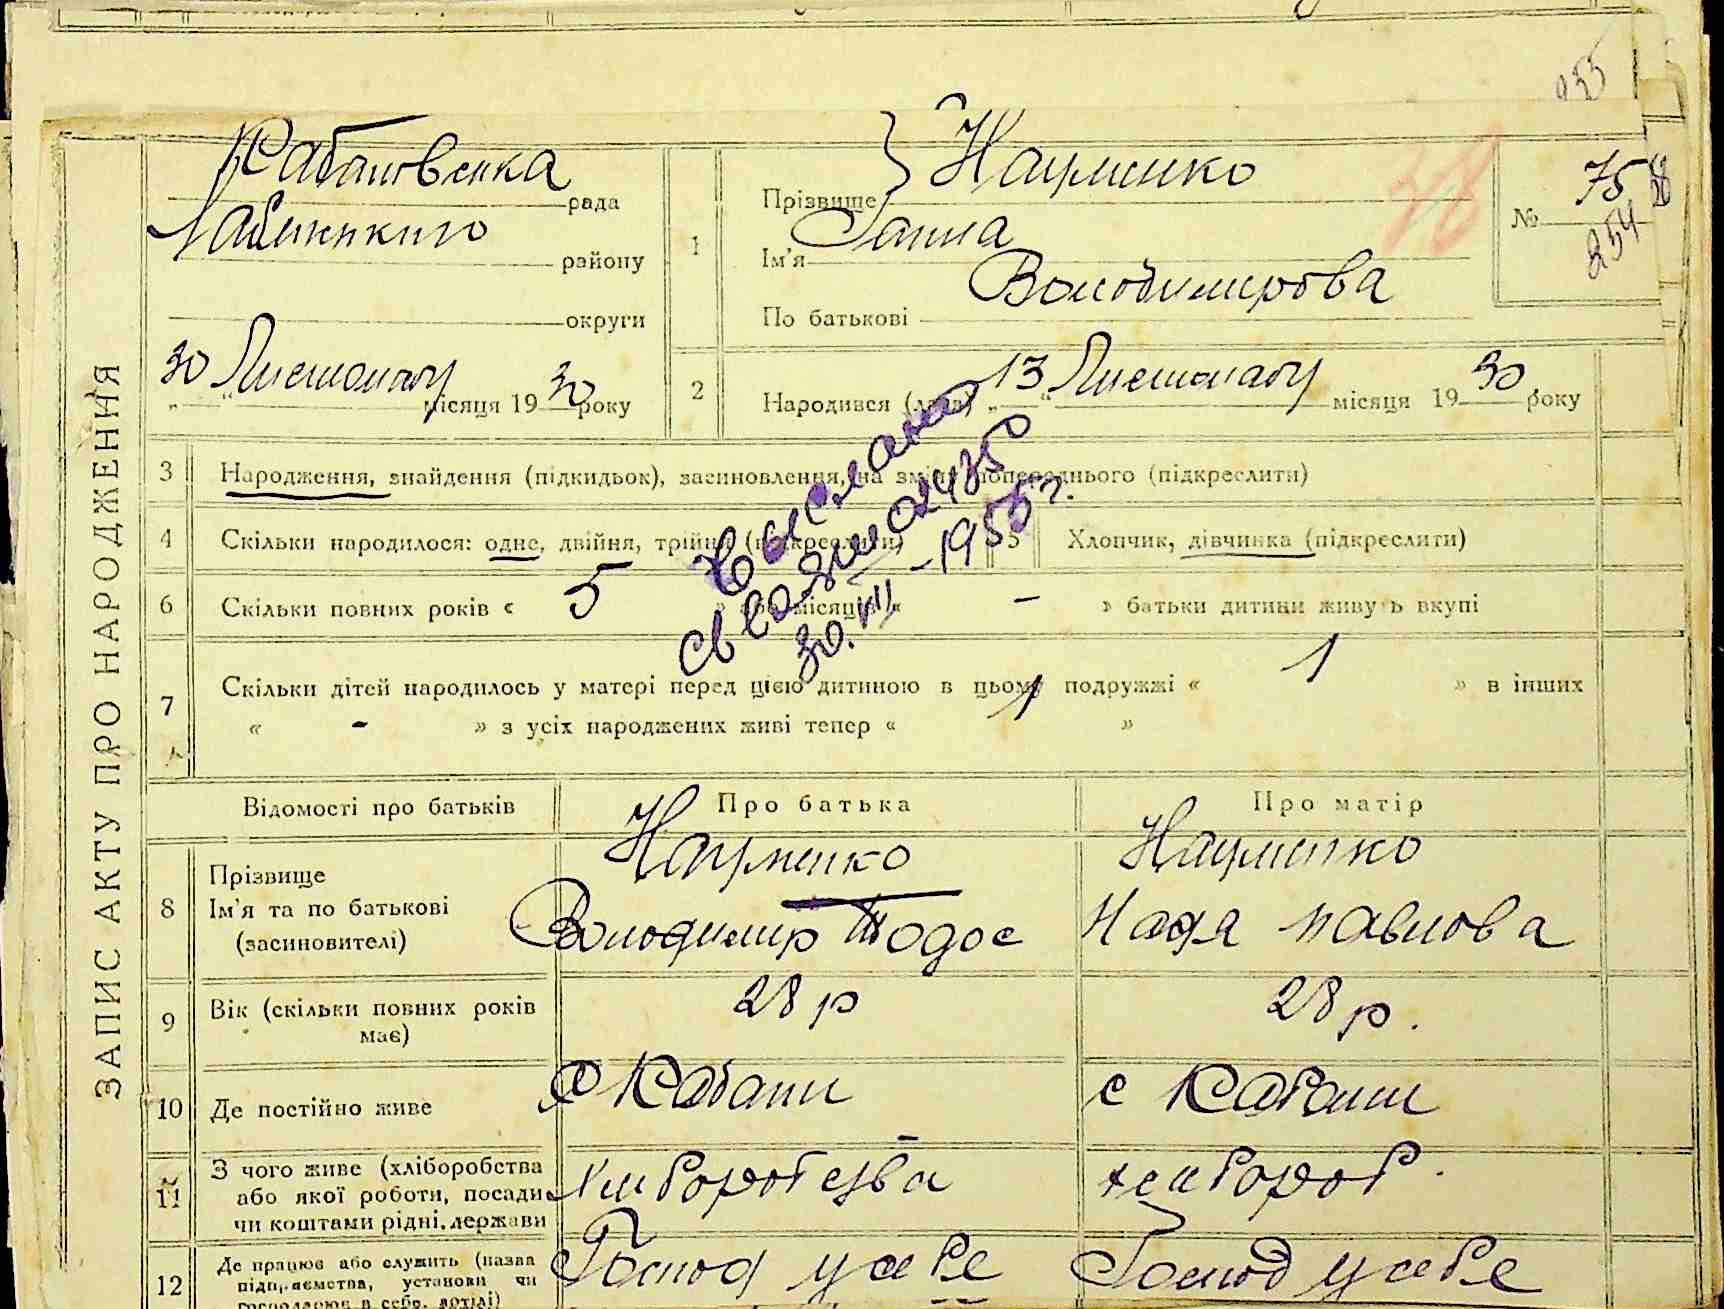 255
ЗАПИС АКТУ ПРО НАРОДЖЕННЯ
Кабановська рада
району
округи
30 Листопаду місяця 1930 року
1
Прізвище Науменко
Ім'я Ганна
По батькові Володимирова
№ 75 58
254
38
2
Народився (дата) „13“ Листопаду місяця 1930 року
3 Народження, знайдення (підкидьок), засиновлення, на зміну попереднього (підкреслити)
4 Скільки народилося: одне, двійня, трійня (підкреслити)
5 Хлопчик, дівчинка (підкреслити)
6 Скільки повних років « 5 » або місяців « - » батьки дитини живуть вкупі
7 Скільки дітей народилось у матері перед цією дитиною в цьому подружжі « 1 » в інших
« - » з усіх народжених живі тепер « 1 »
30.VII-1955г.
Відомості про батьків
Про батька
Про матір
8 Прізвище
Ім'я та по батькові
(засиновителі)
Науменко
Володимир Тодос
Науменко
Надя Павлова
9 Вік (скільки повних років має)
28 р
28 р.
10 Де постійно живе
с Кабани
с Кабани
11 З чого живе (хліборобства
або якої роботи, посади
чи коштами рідні, держави
хлиборобства
хлибороб.
12 Де працює або служить (назва
підприємства, установи чи
господарює в себе, артілі)
Господ у себе
Господ у себе